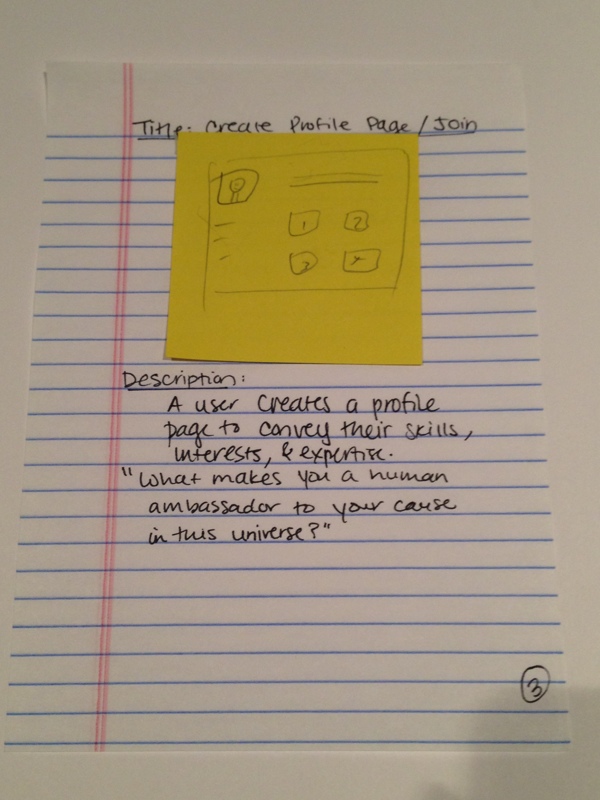 Title: Create Profile Page/Join
1 2
3
Description:
A user creates a profile
page to convey their skills,
interests, & expertise.
"What makes you a human
ambassador to your cause
in this universe?"
3